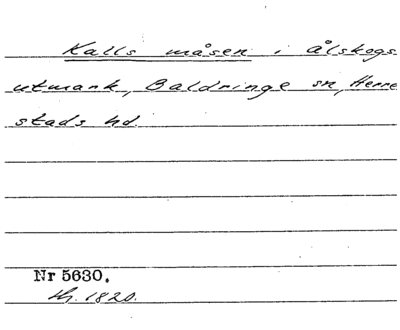 Kalls måsen i Ålskogs
utmark, Baldringe sn, Herre
stads hd.
Nr 5630.
1820.